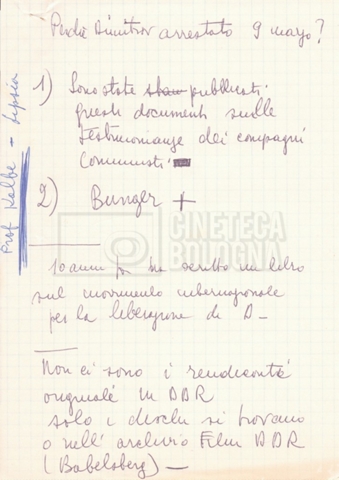 Perché Dimitrov arrestato 9 marzo?
1) Sono state pubblicati
questi documenti sulle
testimonianze dei compagni
comunisti.
2) Bunger +
Prof Kalbe - Lipsia
CINETECA
BOLOGNA
10 anni fa ha scritto un libro
sul movimento internazionale
per la liberazione di D—
Non ci sono i rendiconti
originali in DDR
solo i dischi si trovano
o nell'archivio Film DDR
(Babelsberg) —